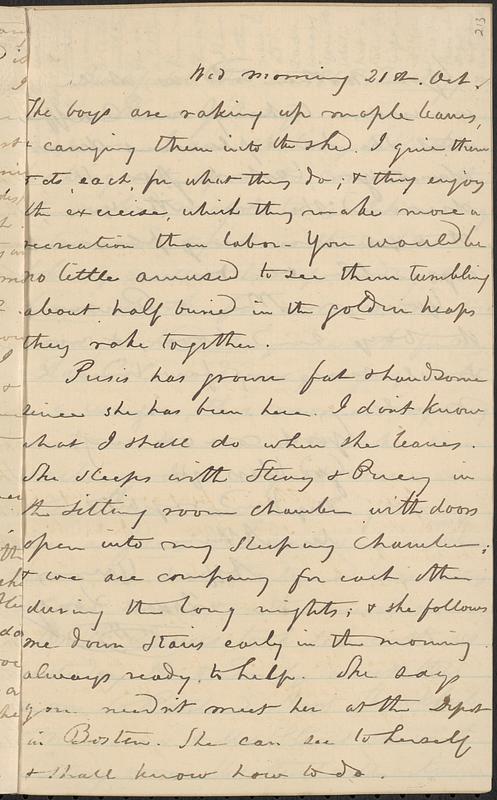 213
Wed morning 21st. Oct.
The boys are raking up maple leaves,
& carrying them into the shed. I give them
cts each, for what they do; & they enjoy
the exercise, which they make more a
recreation than labor - You would be
no little amused to see them tumbling
about half buried in the golden heaps
they rake together.
Pusis has grown fat & handsome
since she has been here. I don't know
what I shall do when she leaves.
She sleeps with Stevy & in
the sitting room chamber with doors
open into my sleeping chamber;
& we are company for each other
during the long nights; & she follows
me down stairs early in the morning
always ready to help. She says
you needn't meet her at the Depot
in Boston. She can see to herself
& shall know how to do.